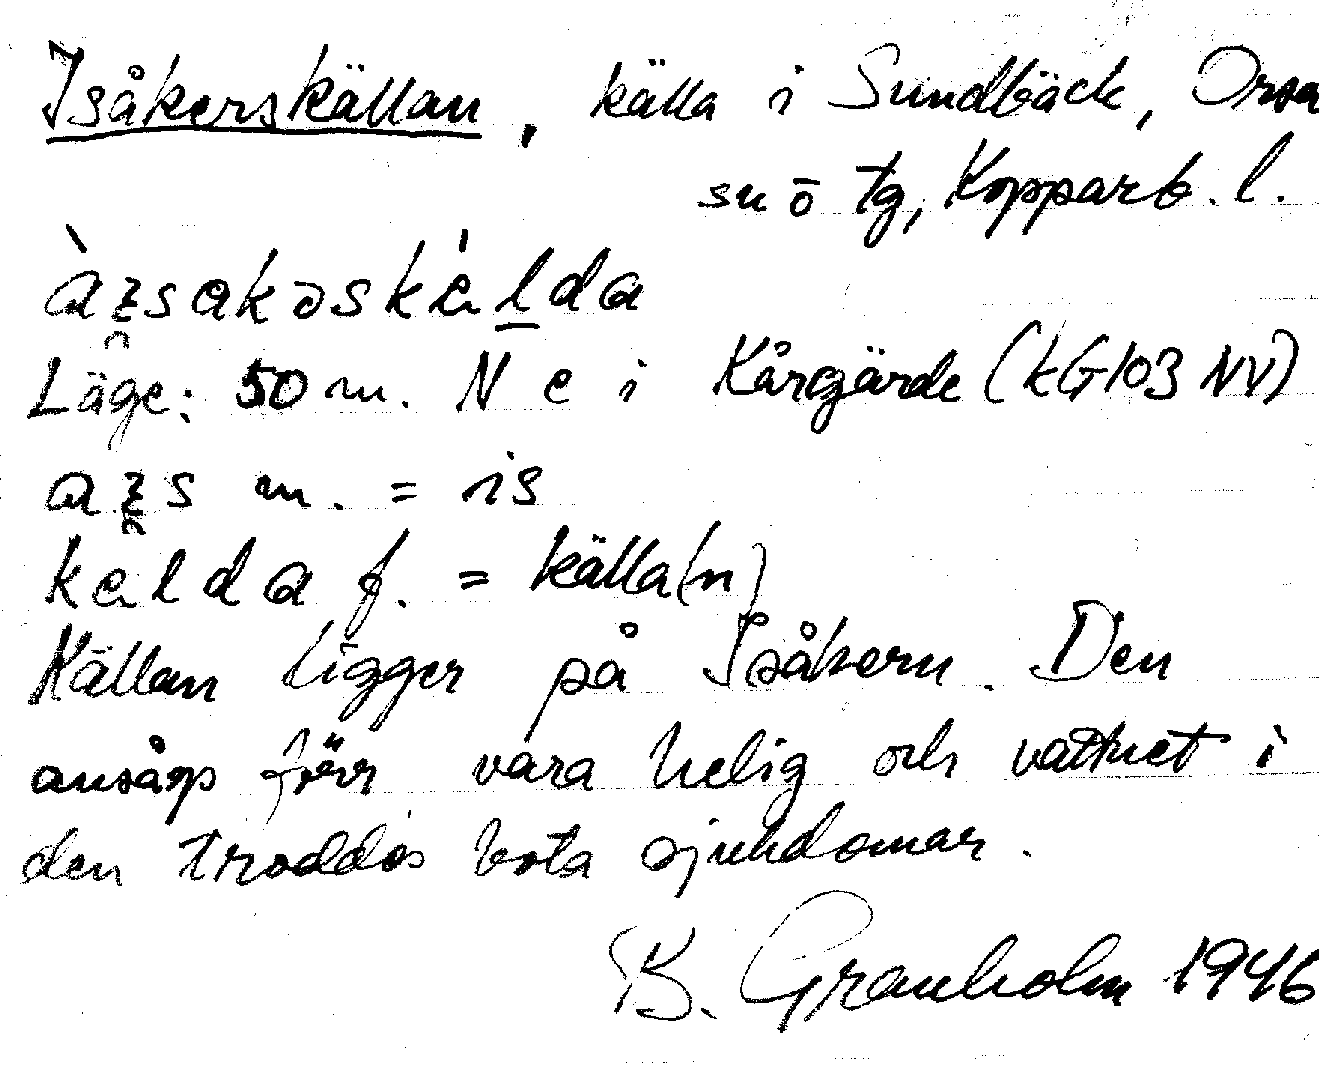 Isåkerskällan, källa i Sundbäck, Orsa
sn ō tg, Kopparb. l.
Läge: 50 m. N e i Kårgärde (kG103 NV)
m. = is
f. = källa(n)
Källan ligger på Isåkern. Den
ansågs förr vara helig och vattnet i
den troddes bota sjukdomar.
B. Granholm 1946